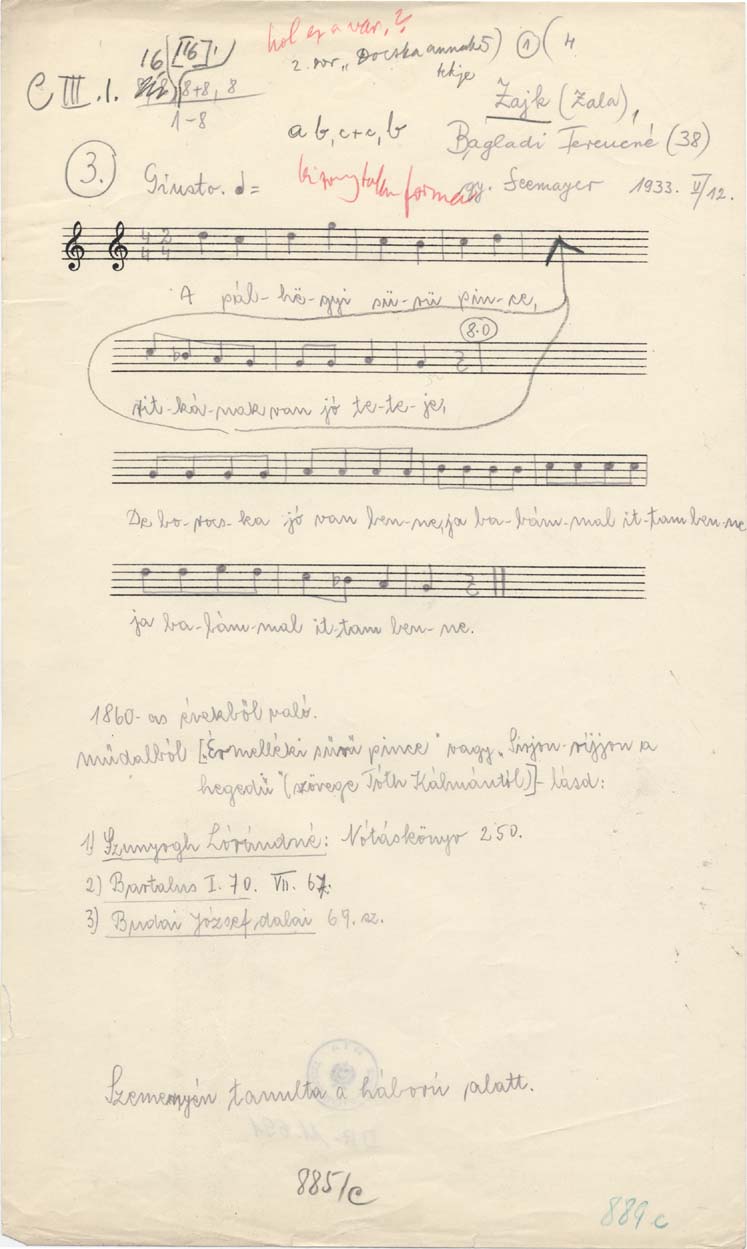 hol ez a var.?
16 [II6]!
2. sor „Docska annak 5) ① ( 4
C III. 1. 8+8, 8
1-8
Zajk (Zala),
a b, c+c, b
Bagladi Ferencné (38)
3. Giusto. =
bizonytalan forma
gy. Seemayer 1933. V/12.
4 2
4 4
A pál-hë-gyi sü-rü pin-ce,
8.0
rit-ká-nak van jó te-te-je,
De bo-rocs-ka jó van ben-ne, ja ba-bám-mal it-tam ben-ne
ja ba-bám-mal it-tam ben-ne.
1860-as évekből való.
műdalból [„Érmelléki sűrű pince" vagy „Sírjon-ríjjon a
hegedű" (szövege Tóth Kálmántól)] - lásd:
1) Szunyogh Lórándné: Nótáskönyv 250.
2) Bartalus I. 70. VII. 67.
3) Budai József dalai 69. sz.
Szemenyén tanulta a háború alatt.
885/c
889 c